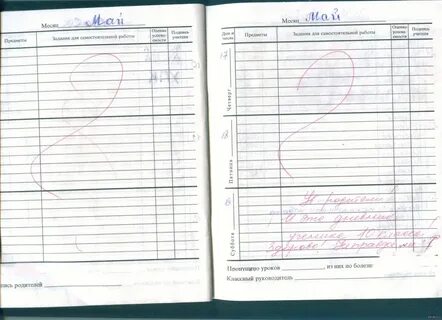 Месяц Май
Предметы
Задания для самостоятельной работы
Оценка успева-емости
Подпись учителя
2
подпись родителей
Месяц Май
Дни и числа
Предметы
Задания для самостоятельной работы
Оценка успева-емости
Подпись учителя
17
Четверг
2
18
Пятница
19
Суббота
И это дневник
ученика 10 класса
Здорово!
Пропущено уроков
из них по болезни
Классный руководитель